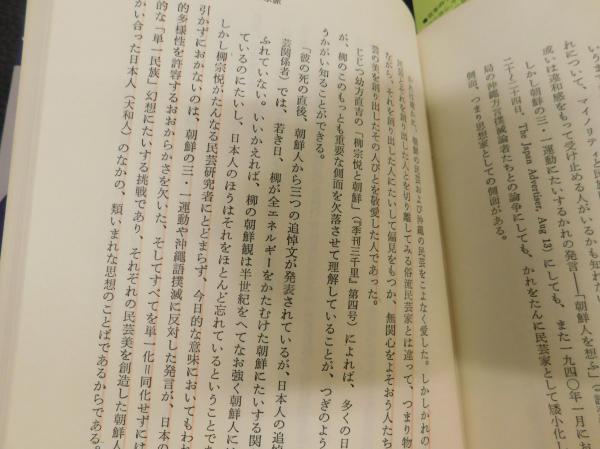 いうならば
れについて、マイノリティと民族
或いは違和感をもって受け止める人がいるかも知れない
しかし朝鮮の三・一運動にたいするかれの発言―「朝鮮人を想ふ」
二十〜二十四日、The Japan Advertiser, Aug 13)にしても、また一九四〇年一月にお
局の沖縄方言撲滅論者たちとの論争にしても、かれをたんに民芸家として矮小化し
側面、つまり思想家としての側面がある。
朝鮮の民芸および沖縄の民芸をこよなく愛した。しかしかれの
民芸とそれを創り出した人とを切り離してみる俗流民芸家とは違って、つまり物
ながら、それを創り出した人にたいして偏見をもつか、無関心をよそおう人たち
芸の美を創り出したその人びとを敬愛した人であった。
じじつ幼方直吉の「柳宗悦と朝鮮」(『季刊三千里』第四号)によれば、多くの日
が、柳のこのもっとも重要な側面を欠落させて理解していることが、つぎのよう
うかがい知ることができる。
「彼の死の直後、朝鮮人から三つの追悼文が発表されているが、日本人の追悼
芸関係者)では、若き日、柳が全エネルギーをかたむけた朝鮮にたいする関
ふれていない。いいかえれば、柳の朝鮮観は半世紀をへてなお強く朝鮮人に
ているのにたいし、日本人のほうはそれをほとんど忘れているということで
しかし柳宗悦がたんなる民芸研究者にとどまらず、今日的な意味においてもわれ
引かずにおかないのは、朝鮮の三・一運動や沖縄語撲滅に反対した発言が、日本の
的多様性を許容するおおからかさを欠いた、そしてすべてを単一化=同化せずには
的な「単一民族」幻想にたいする挑戦であり、それぞれの民芸美を創造した朝鮮人
かい合った日本人(大和人)のなかの、類いまれな思想のことばであるからである。